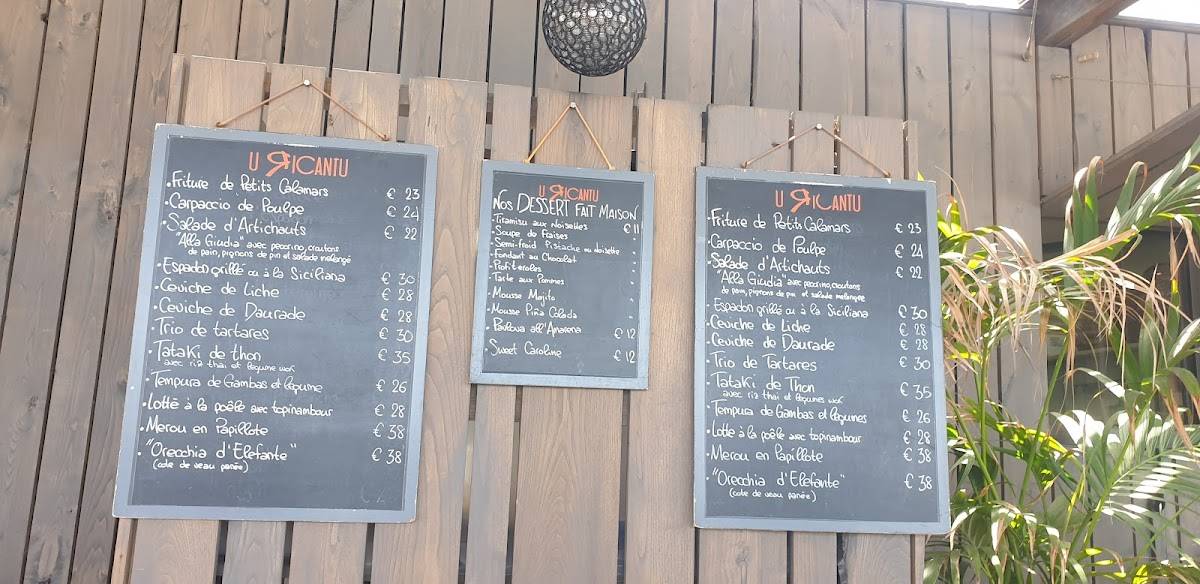 U RICANTU
•Friture de Petits Calamars € 23
•Carpaccio de Poulpe € 24
•Salade d'Artichauts € 22
"Alla Giudia" avec pecorino, croutons
de pain, pignons de pin et salade mélangé
•Espadon grillé ou à la Siciliana € 30
•Ceviche de Liche € 28
•Ceviche de Daurade € 28
•Trio de tartares € 30
•Tataki de thon € 35
avec riz thaï et légume wok
•Tempura de Gambas et légume € 26
•Lotte à la poêle avec topinambour € 28
•Merou en Papillote € 38
•"Orecchia d'Elefante" € 38
(cote de veau panée)
U RICANTU
Nos DESSERT FAIT MAISON
•Tiramisu aux Noisettes € 11
•Soupe de Fraises "
•Semi-froid Pistache ou noisette "
•Fondant au Chocolat "
•Profiteroles "
•Tarte aux Pommes "
•Mousse Mojito "
•Mousse Piña Colada "
•Pavlova all'Amarena € 12
•Sweet Caroline € 12
U RICANTU
•Friture de Petits Calamars € 23
•Carpaccio de Poulpe € 24
•Salade d'Artichauts € 22
"Alla Giudia" avec pecorino, croutons
de pain, pignons de pin et salade melangée
•Espadon grillé ou à la Siciliana € 30
•Ceviche de Liche € 28
•Ceviche de Daurade € 28
•Trio de Tartares € 30
•Tataki de Thon € 35
avec riz thaï et légumes wok
•Tempura de Gambas et légumes € 26
•Lotte à la poêle avec topinambour € 28
•Merou en Papillote € 38
•"Orecchia d'Elefante" € 38
(cote de veau panée)